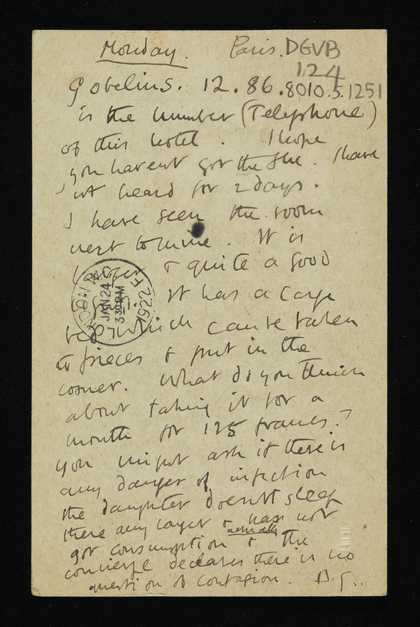 Monday. Paris. DGVB
124
Gobelins. 12.86. 8010.5.1251
is the number (Telephone)
of this hotel. I hope
you havent got the flu. I have
not heard for 2 days.
I have seen the room
next to mine. It is
& quite a good
It has a large
bed which can be taken
to pieces & put in the
corner. What do you think
about taking it for a
month for 125 francs?
You might ask if there is
any danger of infection
the daughter doesnt sleep
there any longer & has not
actually
got consumption & the
concierge declares there is no
question of contagion. D.G..
JAN 24
3 PM
1922